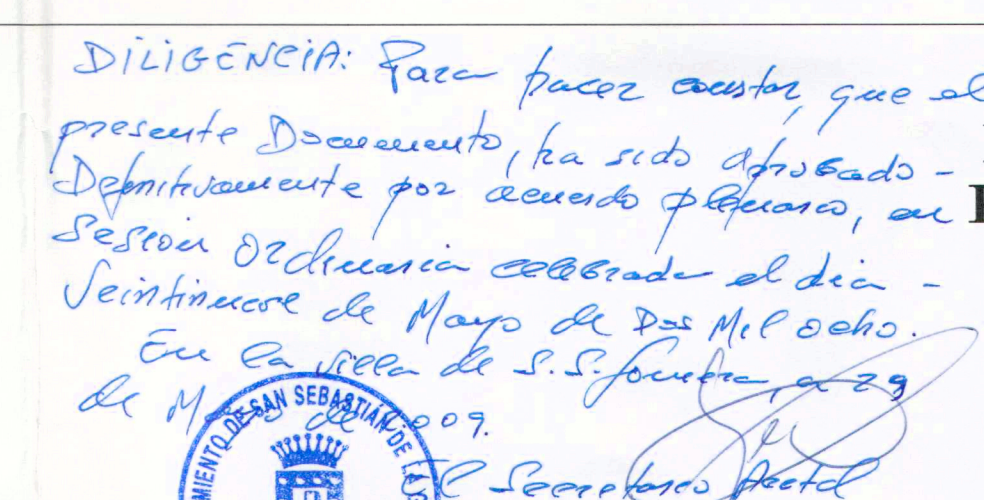 DILIGENCIA: Para hacer constar, que el
presente Documento, ha sido aprobado -
Definitivamente por acuerdo plenario, en
Sesión Ordinaria celebrada el día -
Veintinueve de Mayo de Dos Mil ocho.
En la villa de S.S. Gomera, a 29
de de 2009.
El Secretario Acctal
MIENTO DE SAN SEBASTIAN DE LA